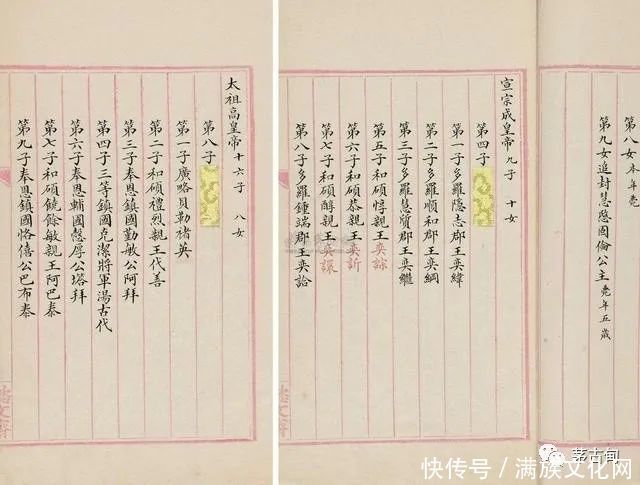 第八女本年薨
第九女追封慧愍固倫公主 薨年五歲
宣宗成皇帝 九子 十女
第四子
第一子多羅隱志郡王奕緯
第二子多羅順和郡王奕綱
第三子多羅慧質郡王奕繼
第五子和碩惇親王奕誴
第六子和碩恭親王奕訢
第七子和碩醇親王奕譞
第八子多羅鍾端郡王奕詥
太祖高皇帝 十六子 八女
第八子
第一子廣略貝勒褚英
第二子和碩禮烈親王代善
第三子奉恩鎮國勤敏公阿拜
第四子三等鎮國克潔將軍湯古代
第六子奉恩輔國愨厚公塔拜
第七子和碩饒餘敏親王阿巴泰
第九子奉恩鎮國恪僖公巴布泰
茅古甸
快传号／满族文化网